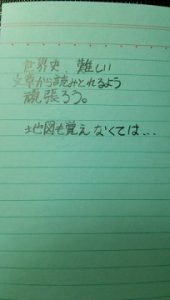 世界史、難しい
文章から読みとれるよう
頑張ろう。
地図も覚えなくては...